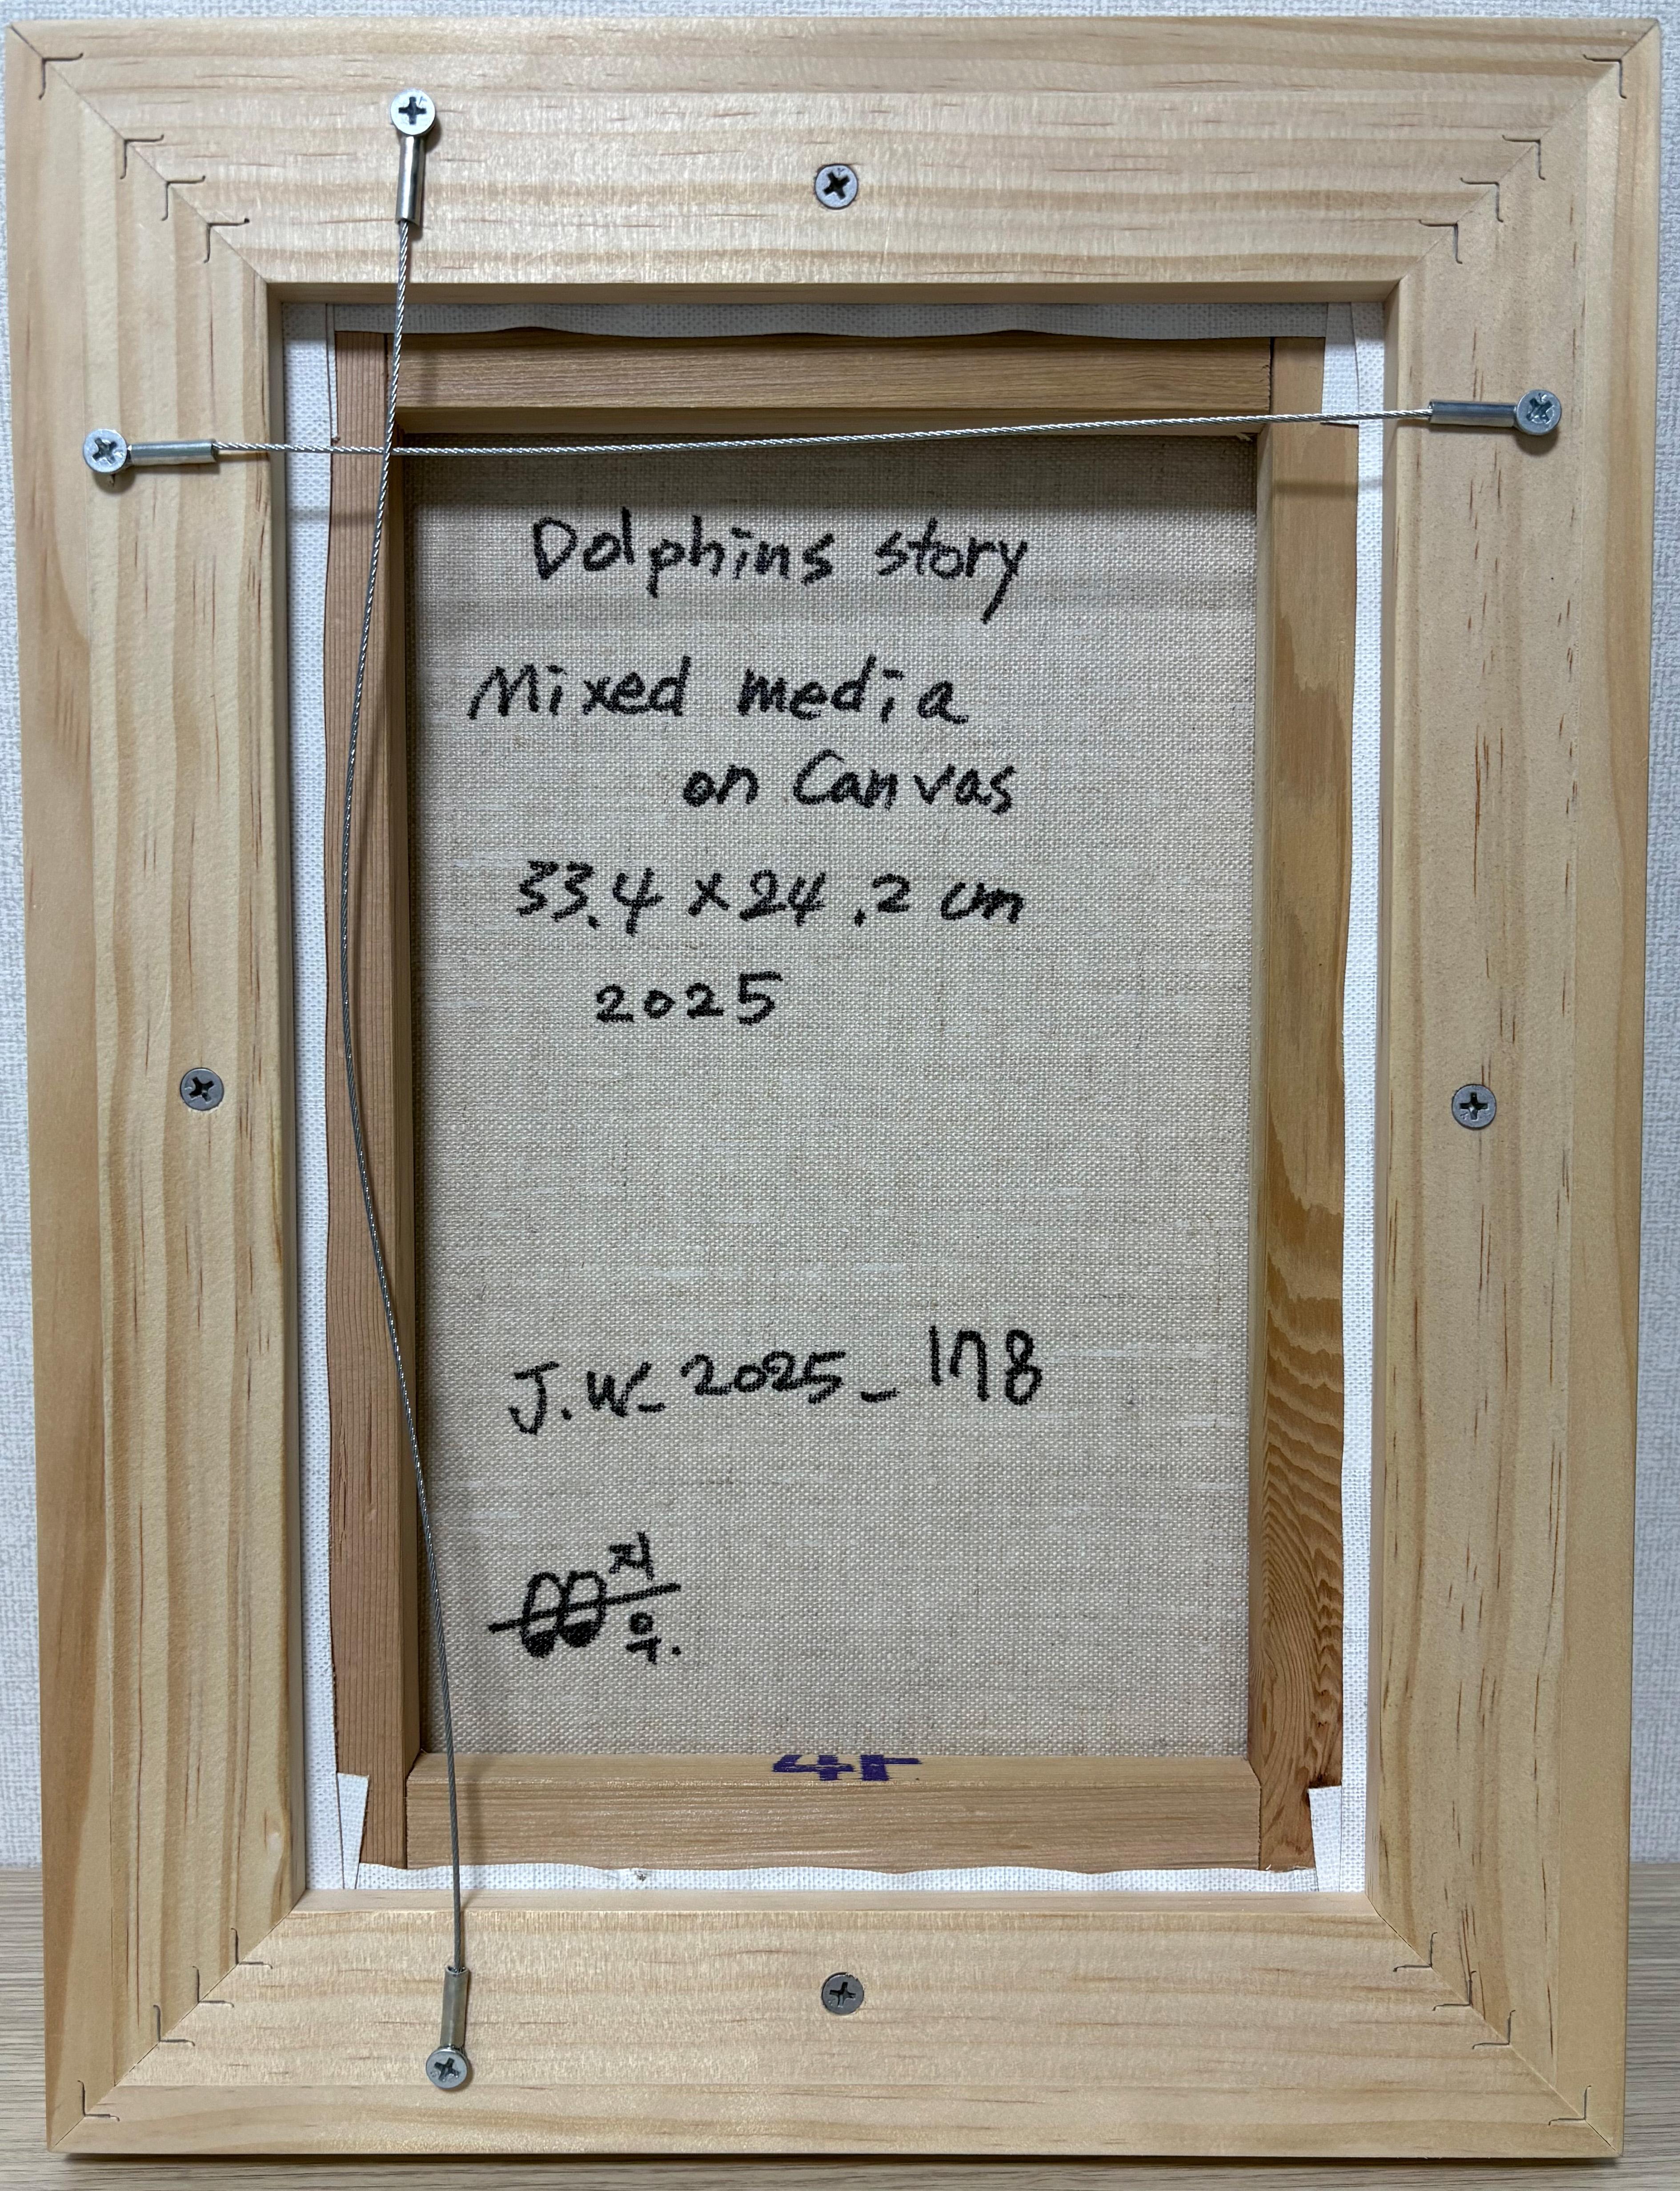 Dolphins story
Mixed media
on Canvas
33.4 × 24.2 cm
2025
J.W_2025_178
지
우.
4F